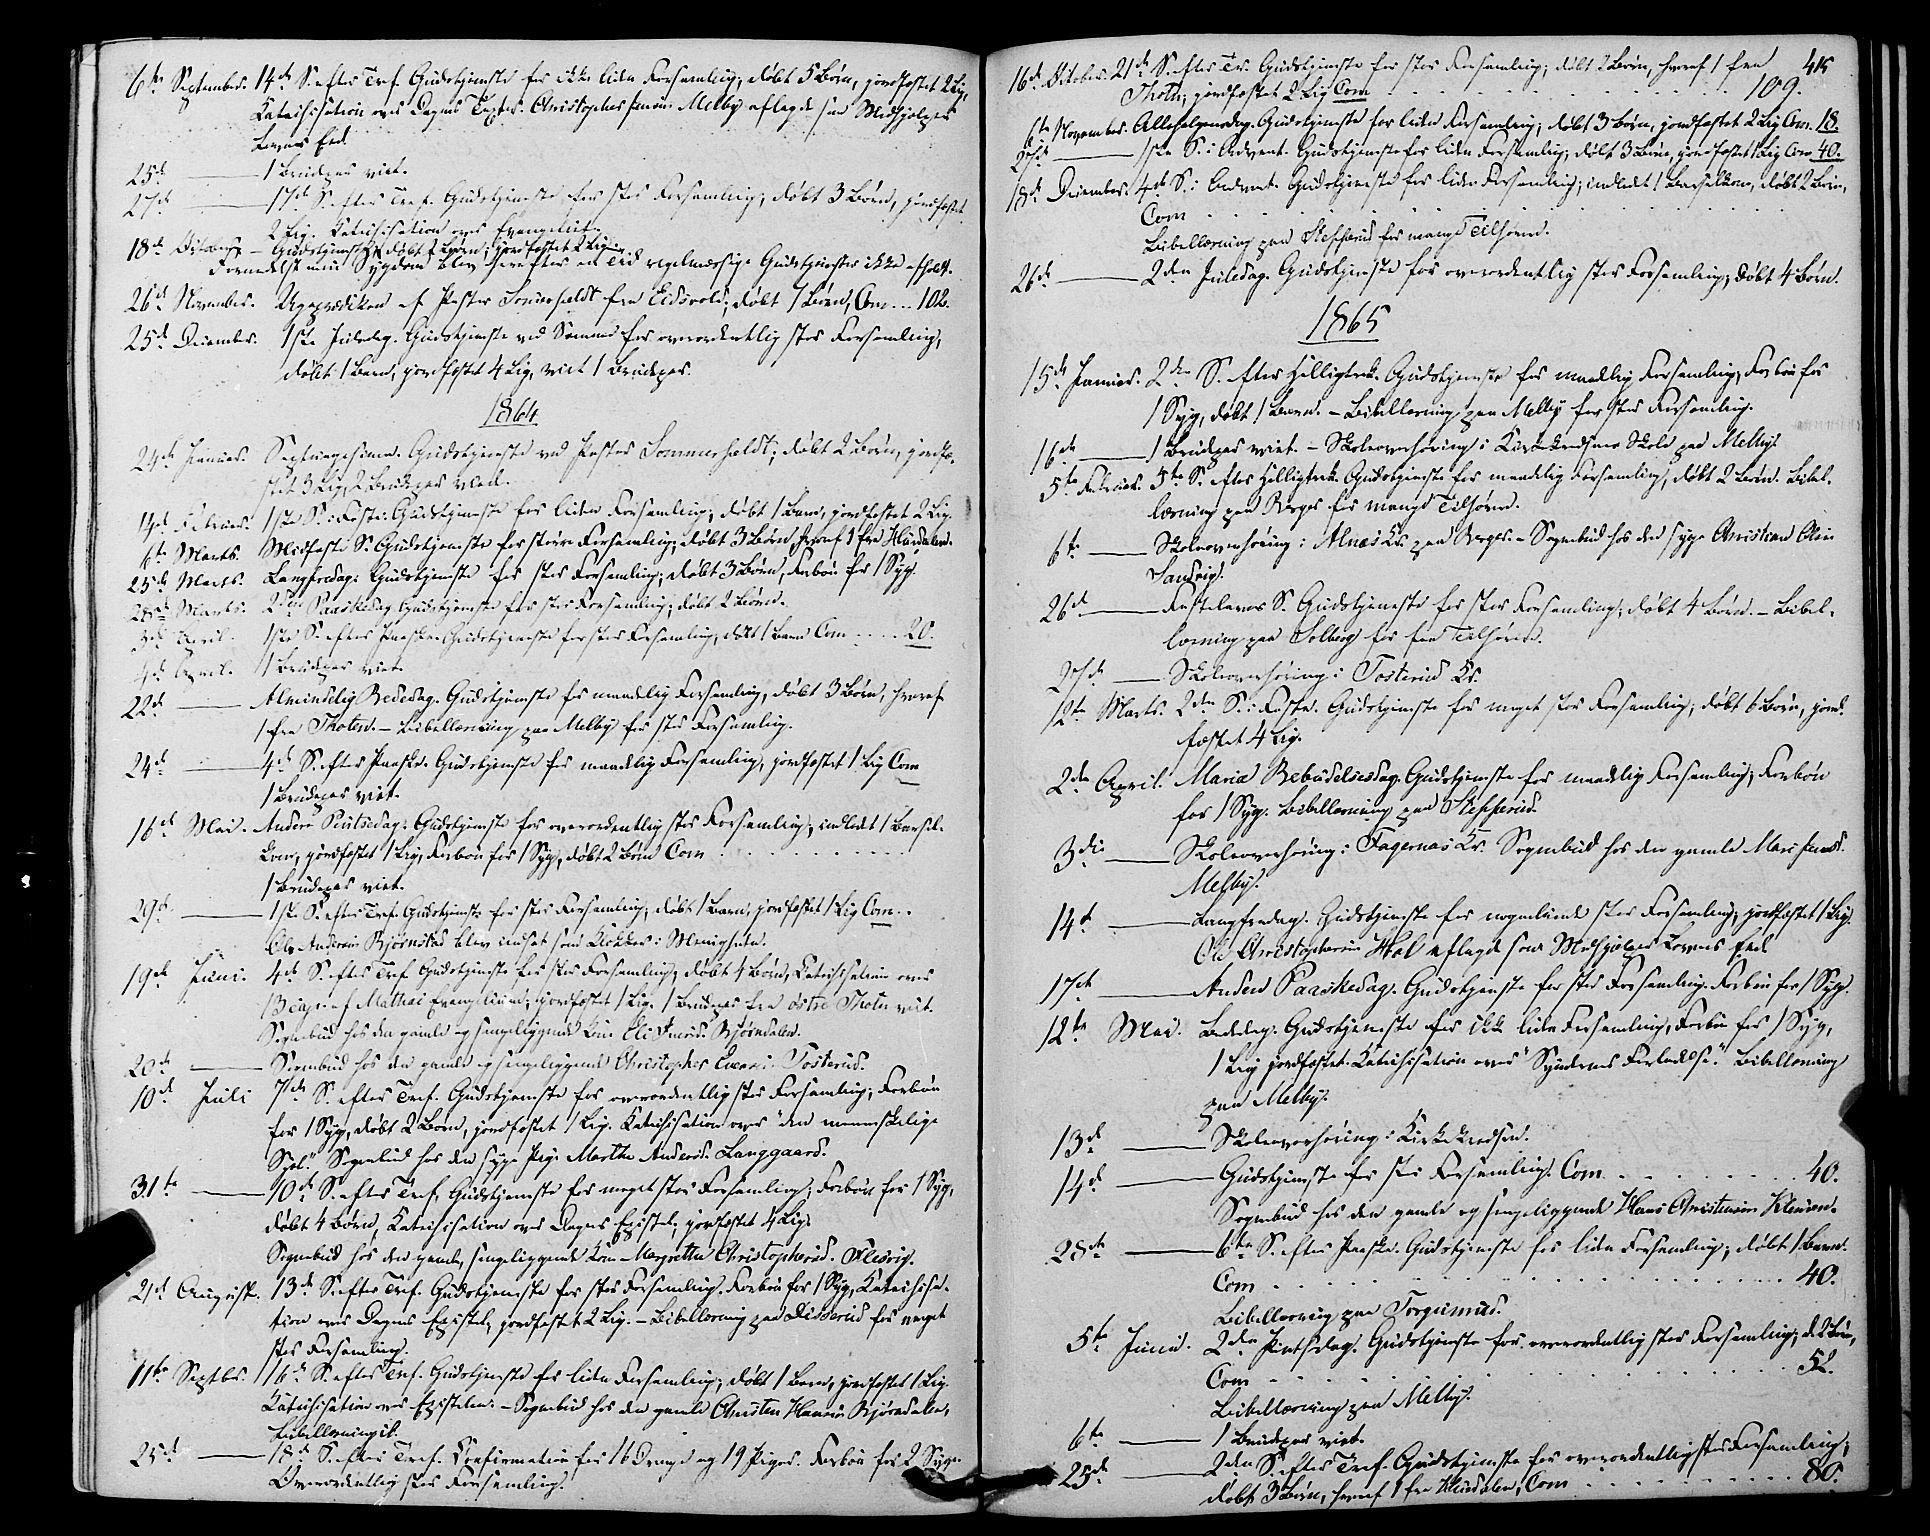 6te September. 14de S. efter Tref. Gudstjeneste for ikke liden Forsamling, døbt 5 Børn, jordfæstet 2 Lig,
Katechisation over Dagens Text. Christopher Melby aflagde sin Medhjælper
Lovens Eed.
25de ——— 1 Brudepar viet.
27de ——— 17de S. efter Tref. Gudstjeneste for stor Forsamling, døbt 3 Børn, jordfæstet
2 Lig. Katechisation over Evangeliet.
18de October — Gudstjeneste, døbt 2 Børn, jordfæstet 2 Lig.
Formedelst min Sygdom blev herefter en Tid regelmæssige Gudstjenester ikke afholdt.
26de November. Ugeprædiken af Pastor Sommerfeldt fra Eidsvold; døbt 1 Børn, Com... 102.
25de December. 1ste Juledag. Gudstjeneste ved Samme for overordentlig stor Forsamling,
døbt 1 Barn, jordfæstet 4 Lig, viet 1 Brudepar.
1864
24de Januar. Septuagesima. Gudstjeneste ved Pastor Sommerfeldt; døbt 2 Børn, jordfæ-
stet 3 Lig, 2 Brudepar viet.
14de Februar. 1ste S. i Faste. Gudstjeneste for liden Forsamling; døbt 1 Barn, jordfæstet 2 Lig.
6te Marts. Midfaste S. Gudstjeneste for større Forsamling; døbt 3 Børn, hvoraf 1 fra Hurdalen.
25de Marts. Langfredag. Gudstjeneste for stor Forsamling; døbt 3 Børn, Forbøn for 1 Syg.
28de Marts. 2den Paaskedag Gudstjeneste for stor Forsamling; døbt 2 Børn.
3die April. 1ste S. efter Paaske. Gudstjeneste for stor Forsamling, døbt 1 Barn Com .... 20.
4de April. 1 Brudepar viet.
22de ——— Almindelig Bededag. Gudstjeneste for maadelig Forsamling, døbt 3 Børn, hvoraf
1 fra Thoten. — Bibellæsning paa Melby for stor Forsamling.
24de ——— 4de S. efter Paaske. Gudstjeneste for maadelig Forsamling, jordfæstet 1 Lig Com
1 Brudepar viet.
16de Mai. Anden Pintsedag. Gudstjeneste for overordentlig stor Forsamling, indledt 1 Barsel-
kone, jordfæstet 1 Lig, Forbøn for 1 Syg, døbt 2 Børn Com . . . . .
1 Brudepar viet.
29de ——— 1ste S. efter Tref. Gudstjeneste for stor Forsamling, døbt 1 Barn, jordfæstet 1 Lig Com . .
Ole Andersen Bjørnstad blev indsat som Kirkesanger i Menigheden.
19de Juni. 4de S. efter Tref Gudstjeneste for stor Forsamling, døbt 4 Børn, Katechisation over
13 cap. af Mathæi Evangelium; jordfæstet 1 Lig. 1 Brudepar fra østre Thoten viet.
Sognebud hos den gamle og sengeliggende Kone Eli Bjørndalen.
20de ——— Sognebud hos den gamle og sengeliggende Christopher Evensen Tosterud.
10de Juli 7de S. efter Tref. Gudstjeneste for overordentlig stor Forsamling, Forbøn
for 1 Syg, døbt 2 Børn, jordfæstet 1 Lig. Katechisation over "den menneskelige
Sjæl." Sognebud hos den syge Pige Marthe Andersd. Langgaard.
31te ——— 10de S. efter Tref. Gudstjeneste for meget stor Forsamling, Forbøn for 1 Syg,
døbt 4 Børn, Katechisation over Dagens Epistel, jordfæstet 4 Lig.
Sognebud hos den gamle, sengeliggende Kone Margrethe Christophersd. Flesvig.
21de August. 13de S. efter Tref. Gudstjeneste for stor Forsamling. Forbøn for 1 Syg, Katechisa-
tion over Dagens Epistel, jordfæstet 2 Lig. — Bibellæsning paa Disserud for meget
stor Forsamling.
11te Septbr. 16de S. efter Tref. Gudstjeneste for liden Forsamling, døbt 1 Barn, jordfæstet 1 Lig
Katechisation over Epistelen. — Sognebud hos den gamle Christen Hansen Bjørndalen,
Bibellæsning ib.
25de ——— 18de S. efter Tref. Confirmation for 16 Drenge og 19 Piger. Forbøn for 2 Syge
Overordentlig stor Forsamling.
16de October. 21de S. efter Tr. Gudstjeneste for stor Forsamling; døbt 2 Børn, hvoraf 1 fra
Thoten; jordfæstet 2 Lig Com . . . . . 109.
6te November. Allehelgensdag. Gudstjeneste for liden Forsamling; døbt 3 Børn, jordfæstet 2 Lig Com. 18.
27de ——— 1ste S. i Advent. Gudstjeneste for liden Forsamling; døbt 3 Børn, jordfæstet 1 Lig Com 40.
18de December. 4de S. i Advent. Gudstjeneste for liden Forsamling; indledt 1 Barselkone, døbt 2 Børn,
Com . . . . .
Bibellæsning paa Stefferud for mange Tilhørere.
26de ——— 2den Juledag. Gudstjeneste for overordentlig stor Forsamling, døbt 4 Børn.
1865
15de Januar. 2den S. efter Helligtrek. Gudstjeneste for maadelig Forsamling, Forbøn for
1 Syg, døbt 1 Barn. — Bibellæsning paa Melby for stor Forsamling.
16de ——— 1 Brudepar viet. — Skoleoverhøring i Kirkekredsens Skole paa Melby.
5te Februar. 5te S. efter Helligtrek. Gudstjeneste for maadelig Forsamling, døbt 2 Børn. Bibel-
læsning paa Berger for mange Tilhørere.
6te ——— Skoleoverhøring i Alnæs Kr. paa Berger. — Sognebud hos den syge Christian
Sandvig.
26de ——— Fastelavns S. Gudstjeneste for stor Forsamling, døbt 4 Børn. — Bibel-
læsning paa Solberg for faa Tilhørere.
27de ——— Skoleoverhøring i Tosterud Kr.
12te Marts. 2den S. i Faste. Gudstjeneste for meget stor Forsamling; døbt 6 Børn, jord-
fæstet 4 Lig.
2den April. Mariæ Bebudelsesdag. Gudstjeneste for maadelig Forsamling, Forbøn
for 1 Syg. Bibellæsning paa Stefferud.
3die ——— Skoleoverhøring i Fagernæs Kr. Sognebud hos den gamle Mari
Melby.
14de ——— Langfredag. Gudstjeneste for nogenlunde stor Forsamling, jordfæstet 1 Lig.
Ole Christophersen Hol aflagde som Medhjælper Lovens Eed.
17de ——— Anden Paaskedag. Gudstjeneste for stor Forsamling. Forbøn for 1 Syg.
12te Mai. Bededag. Gudstjeneste for ikke liden Forsamling, Forbøn for 1 Syg,
1 Lig jordfæstet. Katechisation over "Syndernes Forladelse." Bibellæsning
paa Melby.
13de ——— Skoleoverhøring i Kirkekredsen.
14de ——— Gudstjeneste for stor Forsamling. Com . . . . . 40.
Sognebud hos den gamle og sengeliggende Hans Christensen
28de ——— 6te S. efter Paaske. Gudstjeneste for liden Forsamling; døbt 1 Barn.
Com . . . . . 40.
Bibellæsning paa Torgunrud.
5te Juni. 2den Pintsedag. Gudstjeneste for overordentlig stor Forsamling, d. 2 Børn,
Com . . . . . 52.
Bibellæsning paa Melby.
6te ——— 1 Brudepar viet.
25de ——— 2den S. efter Tref. Gudstjeneste for overordentlig stor Forsamling,
døbt 3 Børn, hvoraf 1 fra Hurdalen, Com . . . . . 80.